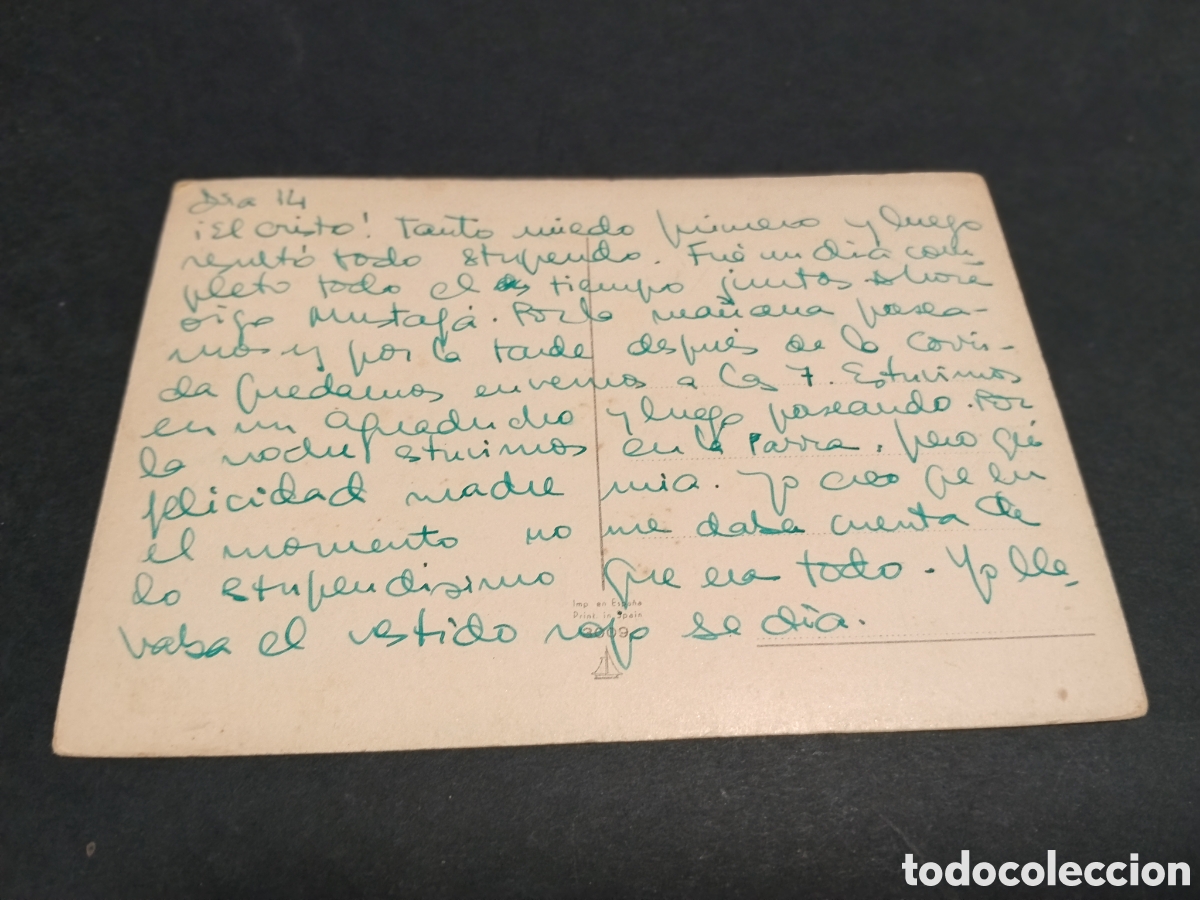 Dia 14
¡El Cristo! Tanto miedo primero y luego
resultó todo stupendo. Fué un dia com-
pleto todo el tiempo juntos Ahora
oigo Mustafá. Por la mañana pasea-
mos y por la tarde después de la comi-
da quedamos en vernos a las 7. Estuvimos
en un aguaducho y luego paseando. Por
la noche stuvimos en la Parra, pero qué
felicidad madre mia. Yo creo que en
el momento no me daba cuenta de
lo stupendisimo que era todo. Yo lle-
vaba el vestido rojo se dia.
Imp. en España
Print. in Spain
2009
todocoleccion